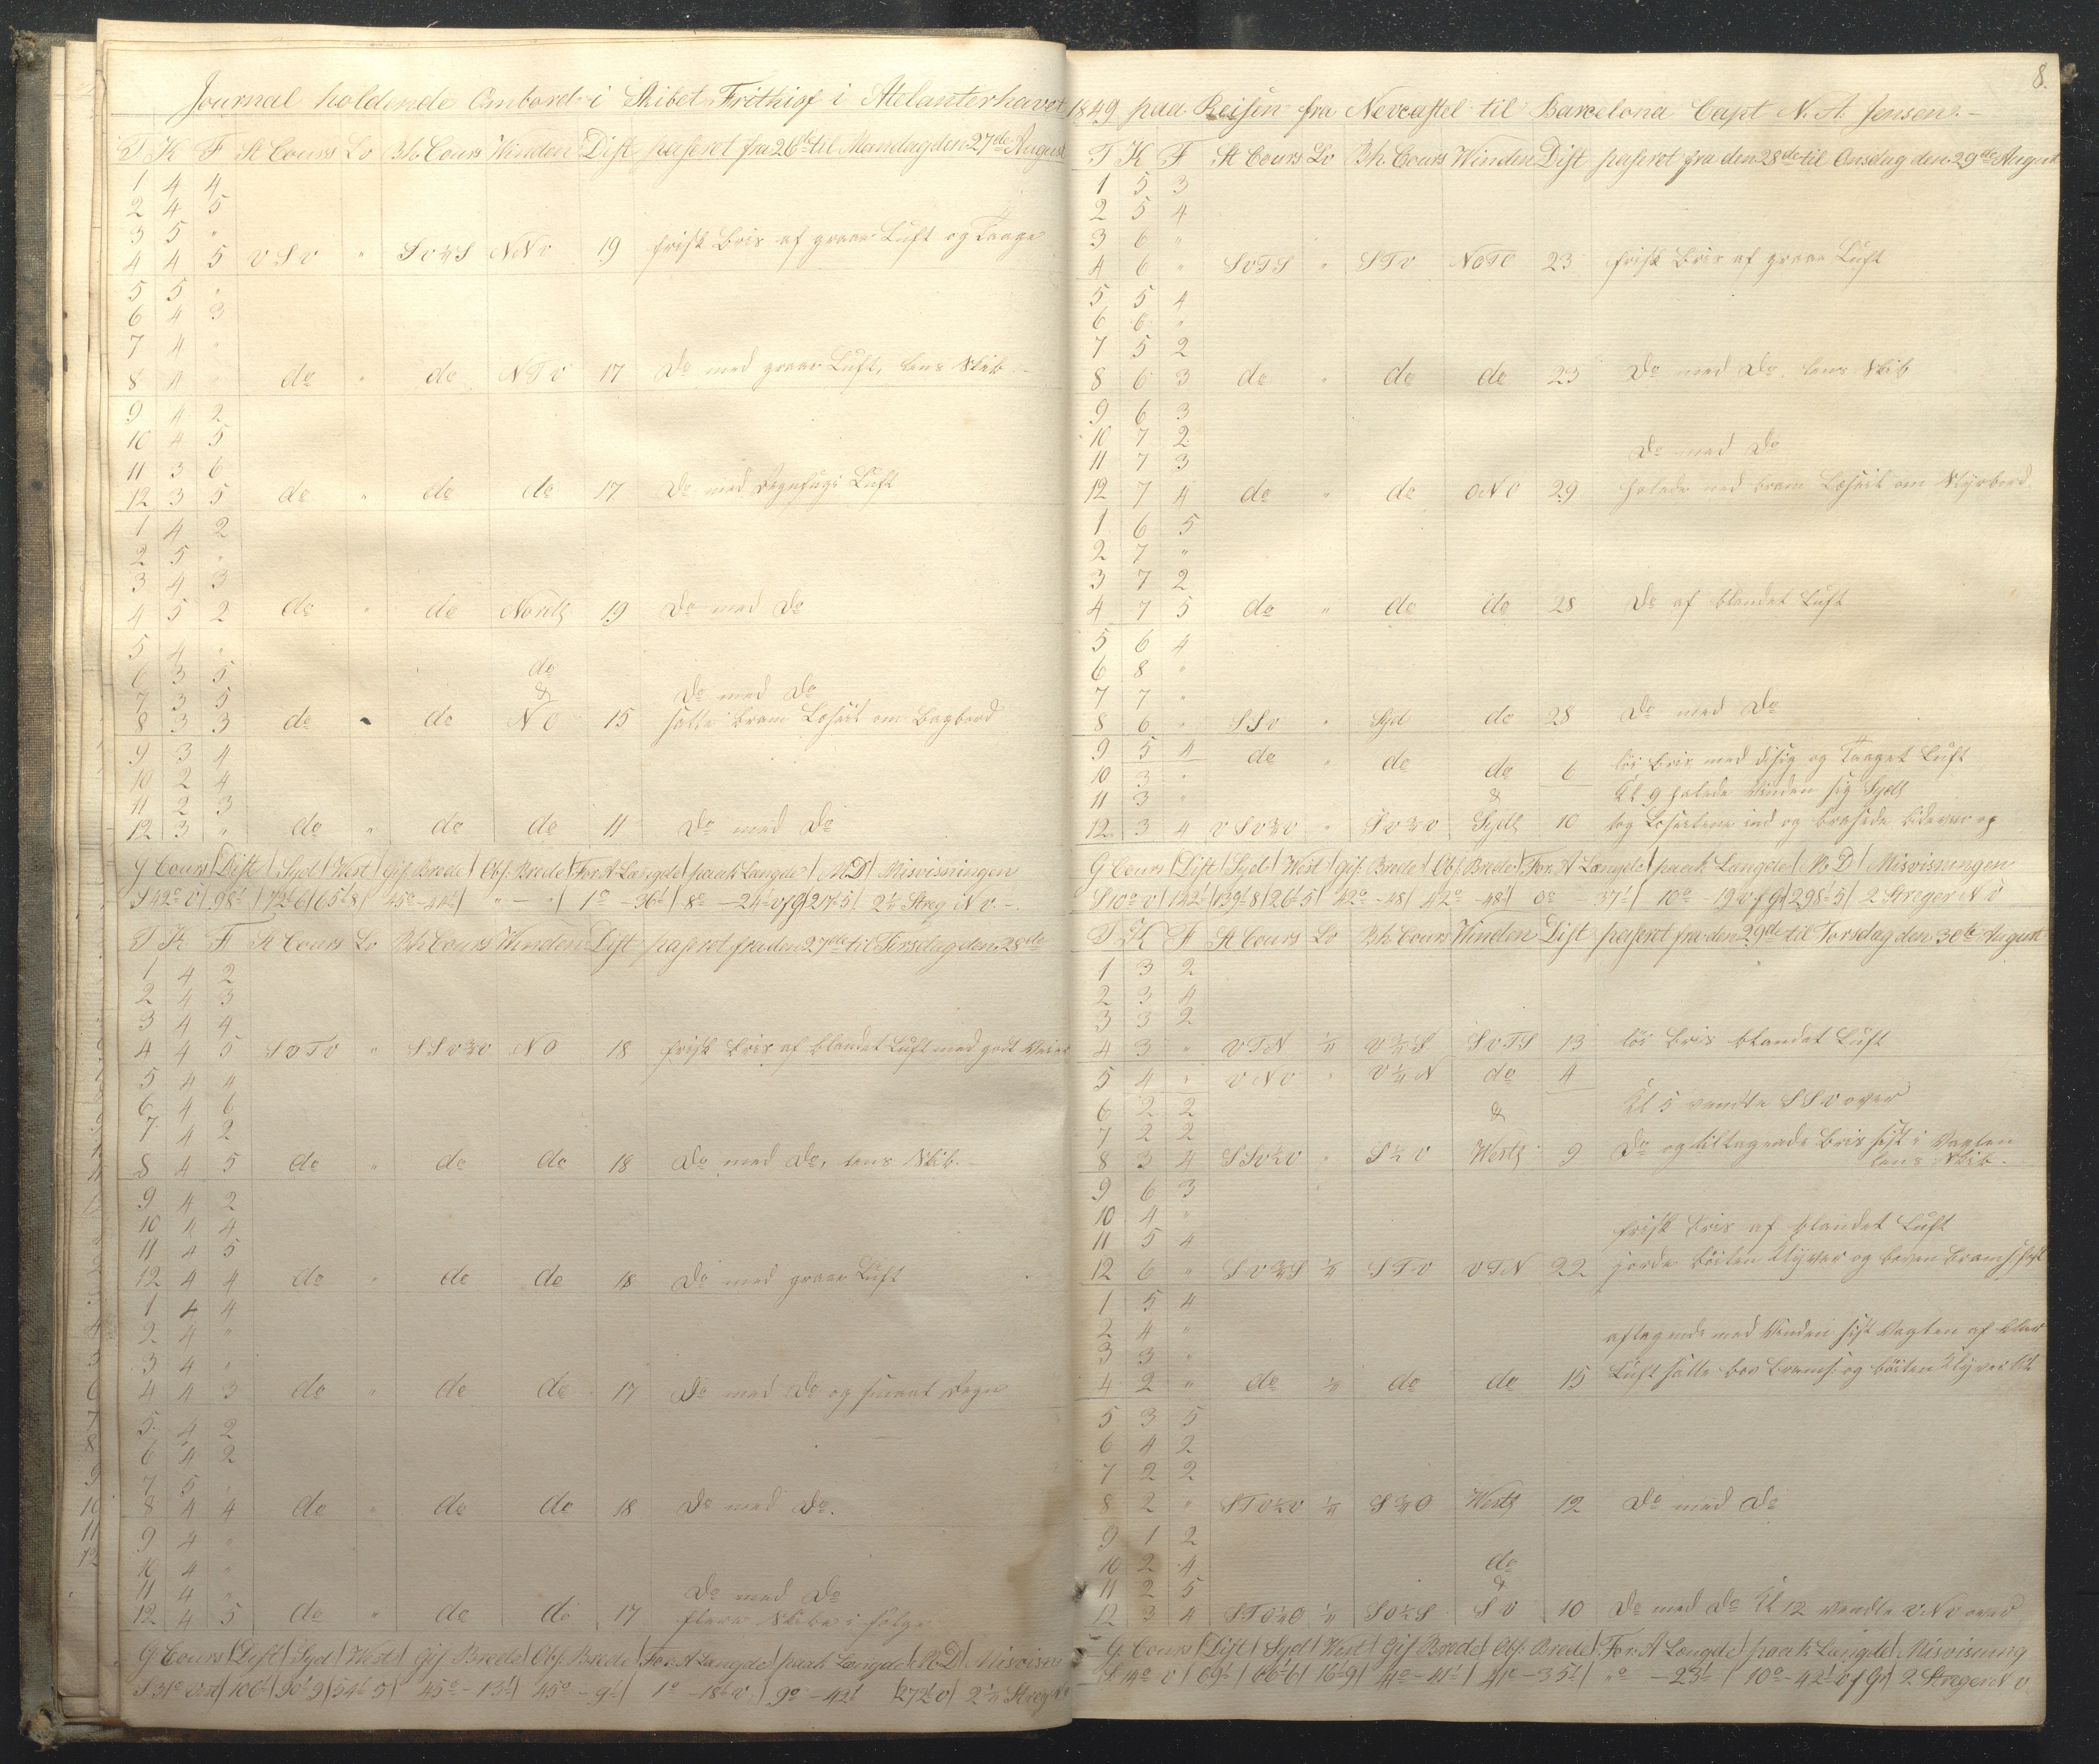 Journal holdende Ombord i Skibet Frithiof i Atelanterhavet
T K F St Cours Lo Bh. Cours Winden Dist paseret fra 26de til Mandag den 27de August
1 4 4
2 4 5
3 5 "
4 4 5 V S V " NNV 19 frisk Bris af graae Luft og Taage
5 5 "
6 4 3
7 4 "
8 4 " do " do NTV 17 Do med graae Luft, lens Skib.
9 4 2
10 4 5
11 3 6
12 3 5 do " do do 17 Do med Luft
1 4 2
2 5 "
3 4 3
4 5 2 do " do Nords 19 Do med Do
5 4 "
6 3 5 do
7 3 5 & Do med Do
8 3 3 do " do NO 15 satte bram Læseil om Bagbord
9 3 4
10 2 4
11 2 3
12 3 " do " do do 11 Do med Do
G Cours Dist Syd West Gis. Brede Obs. Brede For. A Længde paak Længde MD Misvisningen
S 42° V 98' 72'6 65'8 45° - 44' " - " 1° - 36' 8° - 24' V f G 2 1/4 Streg NV.
T K F St Cours Lo Bh. Cours Winden Dist paseret fra den 27de til Tirsdag den 28de
1 4 2
2 4 3
3 4 4
4 4 5 " SSV3/4V NO 18 frisk Bris af blandet Luft med godt Veier
5 4 4
6 4 6
7 4 2
8 4 5 do " do do 18 Do med Do, lens Skib.
9 4 2
10 4 4
11 4 5
12 4 4 do " do do 18 Do med graae Luft
1 4 4
2 4 "
3 4 "
4 4 3 do " do do 17 Do med Do og smaat Regn
5 4 2
6 4 2
7 5 "
8 4 4 do " do do 18 Do med Do.
9 4 "
10 4 "
11 4 " Do med Do
12 4 5 do " do do 17 flere Skibe i følge
G Cours Dist Syd West Gis Brede Obs. Brede For. A Længde paak Længde MD Misvisn
S 31° Vest 106' 90'9 54'5 45° - 13' 45° - 9' 1° - 18' V 9° - 42' 272' V 2 1/4 Streg
8.
1849 paa Reisen fra Nevcastel til Barcelona Capt N. A. Jensen.
T K F St Cours Lo Bh. Cours Winden Dist paseret fra den 28de til Onsdag den 29de August
1 5 3
2 5 4
3 6 "
4 6 " SVTS " STV NOTO 23 frisk Bris af graae Luft
5 5 4
6 6 "
7 5 2
8 6 3 do " do do 23 Do med Do. lens Skib
9 6 3
10 7 2
11 7 3 Do med Do
12 7 4 do " do ONO 29 halede ned bram Læseil om Styrbord
1 6 5
2 7 "
3 7 2
4 7 5 do " do do 28 Do af blandet Luft
5 6 4
6 8 "
7 7 "
8 6 " SSV " Syd do 28 Do med Do
9 5 4 do " do do 6 løi Bris med disig og Taaget Luft
10 3 "
11 3 " & Kl 9 halede Vinden sig Sydl
12 3 4 VSV3/4V " SV3/4V Sydl 10 tog Læseilene ind og brasede op
G Cours Dist Syd West Gis. Brede Obs. Brede For. A Længde paak Længde MD Misvisningen
S 10° V 142' 139'8 26'5 42° - 48' 42° - 48' 0° - 37' 10° - 19' V f G 298'5 2 Streger NV
T K F St Cours Lo Bh. Cours Winden Dist paseret fra den 29de til Torsdag den 30te August
1 3 2
2 3 4
3 3 2
4 3 " VTN 1/4 SVTS 13 løi Bris blandet Luft
5 4 " VNV " V1/4N do 4
6 2 2 & Kl 5 vendte SSV over
7 2 2
8 3 4 SSV1/2V " S1/2V Wests 9 Do og tiltagende Bris sidst i Vagten
lens Skib.
9 6 3
10 4 "
11 5 4 frisk Bris af blandet Luft
12 6 " SV3/4S 1/4 STV VTN 22 Klyver og boven
1 5 4
2 4 " aftagende med Vinden sidst Vagten af klar
3 3 "
4 2 " do 1/4 do do 15 Luft satte bov Brams. og Klyver
5 3 5
6 4 2
7 2 2
8 2 " STV1/2V 1/4 S3/4O Wests 12 Do med Do
9 1 2
10 2 4 do
11 2 5 &
12 3 4 1/4 SO1/2S SV 10 Do med Do Kl 12 vendte VNV over
G. Cours Dist Syd West Gis Brede Obs. Brede. For. A Længde paak Længde Misvisning
S. 14° V 69' 66'6 16'9 41° - 41' 41° - 35' "° - 23' 10° - 42' V f Gr 2 Streger NV